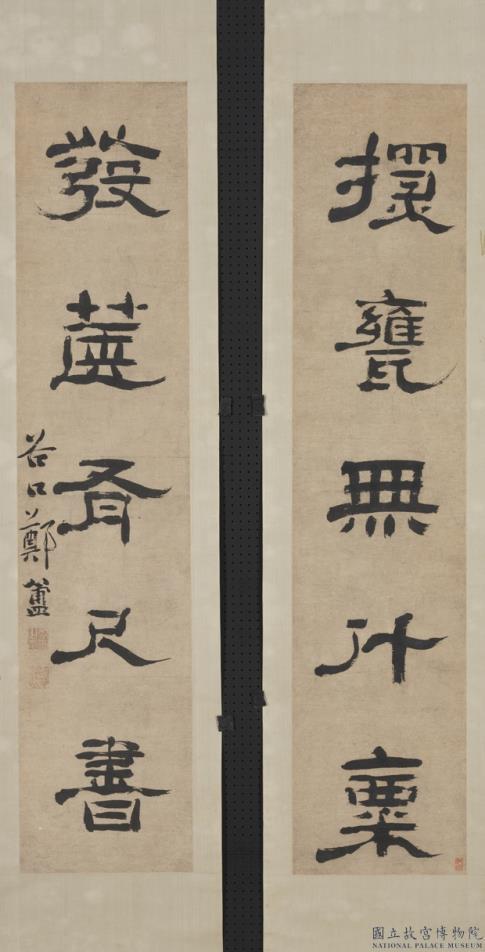 擐甕無斗粟
發篋有尺書
谷口鄭簠
國立故宮博物院
NATIONAL PALACE MUSEUM